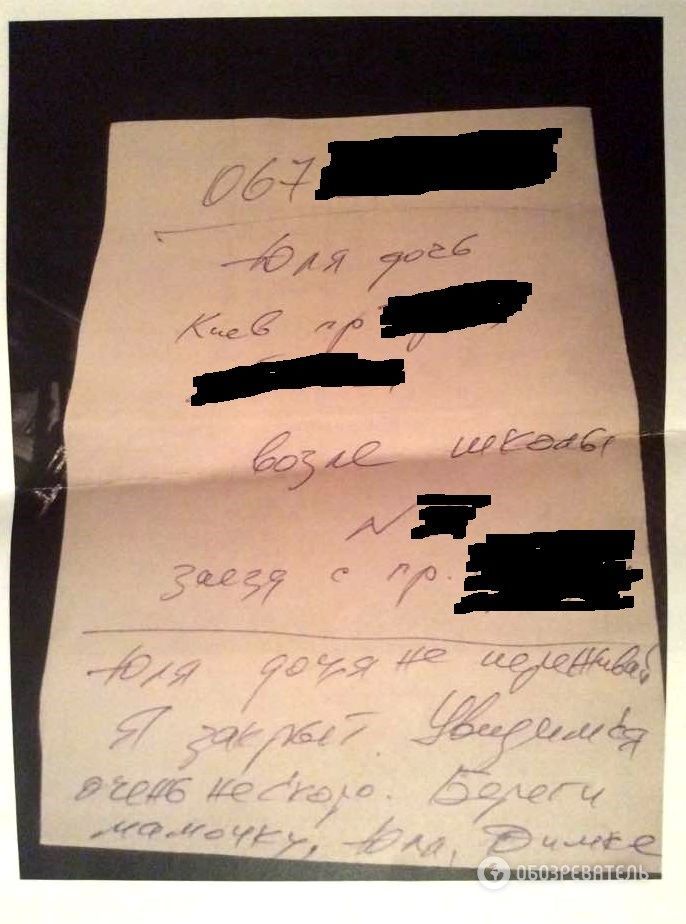 067
Юля дочь
Киев пр
возле школы
N
заезд с пр.
Юля дочя не переживай
Я закрыт. Увидимся
очень не скоро. Береги
мамочку, Юла, Димке
ОБОЗРЕВАТЕЛЬ